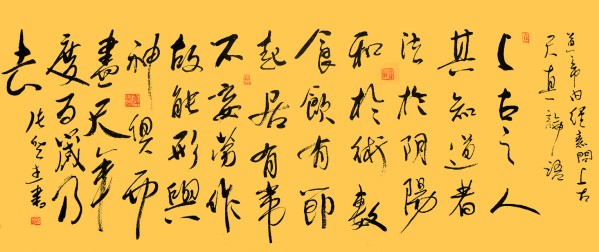 黄帝内經素問上古
天真論語
上古之人
其知道者
法於陰陽
和於術數
食飲有節
起居有常
不妄勞作
故能形與
神俱而
盡天年
度百歲乃
去